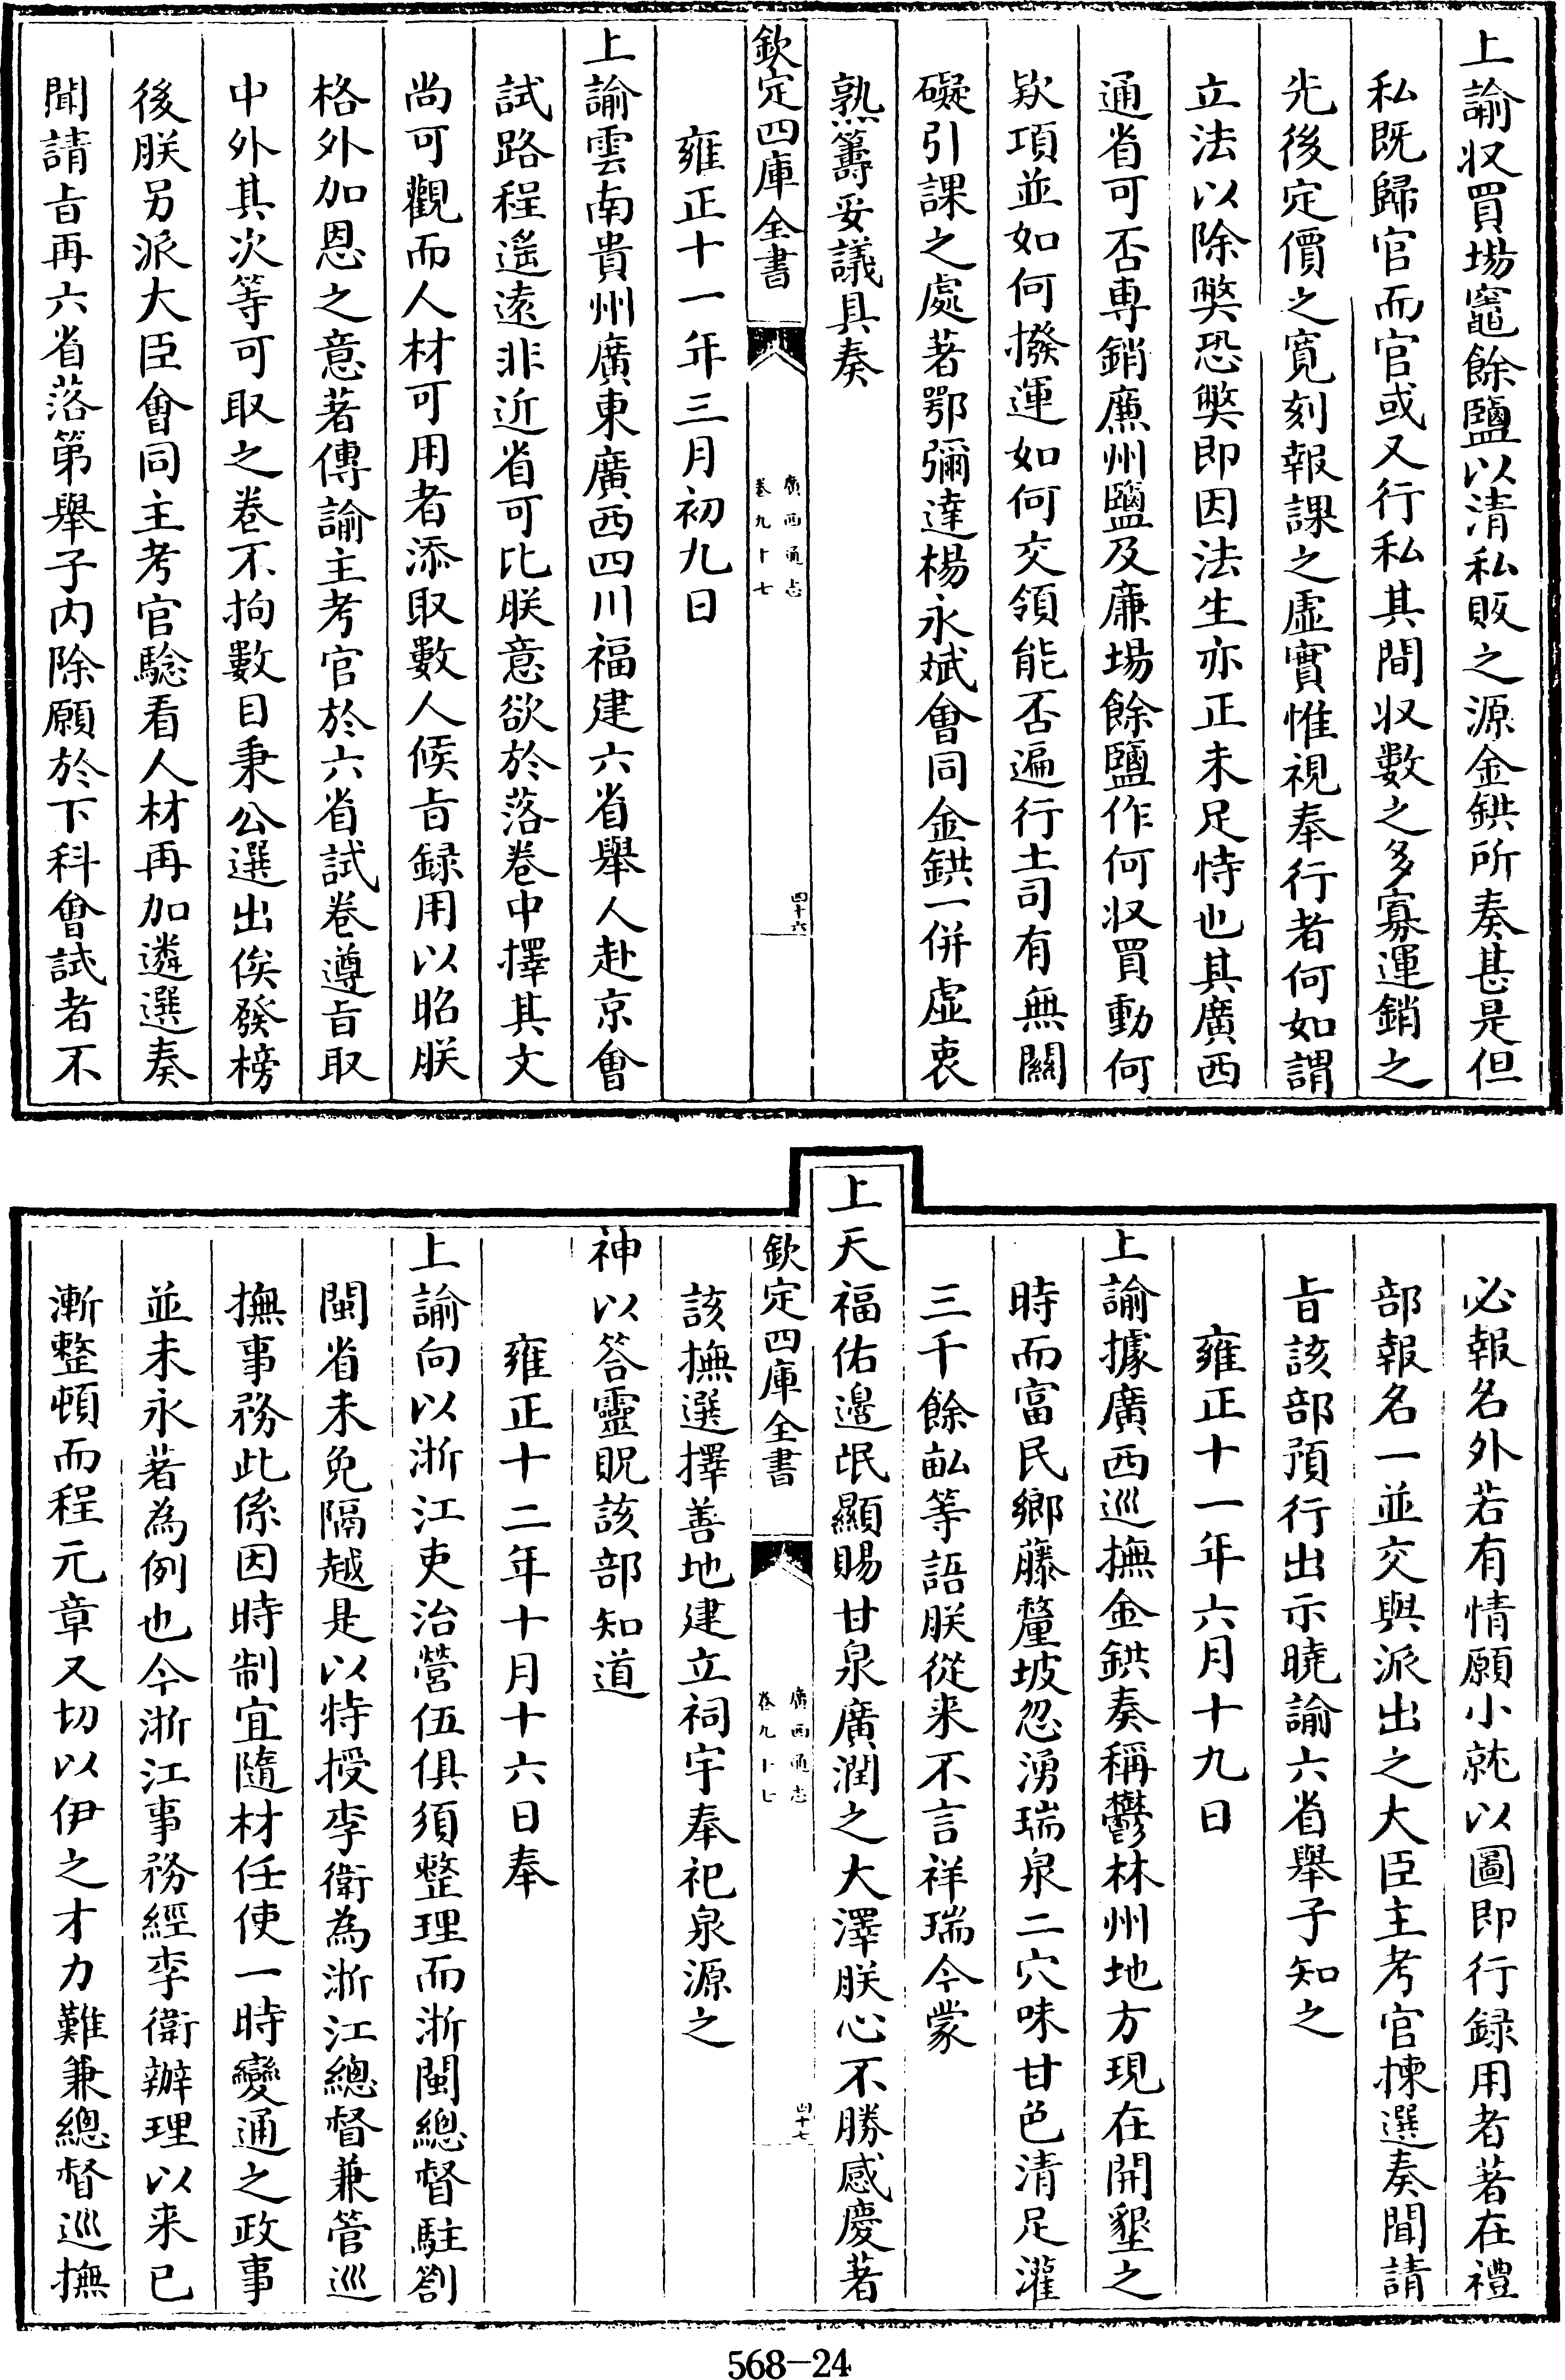 上諭収買場竈餘鹽以清私販之源金鉷所奏甚是但
私既歸官而官或又行私其間収數之多寡運銷之
先後定價之寛刻報課之虛實惟視奉行者何如謂
立法以除弊恐弊即因法生亦正未足恃也其廣西
通省可否專銷廉州鹽及廉場餘鹽作何収買動何
欵項並如何撥運如何交領能否遍行土司有無關
礙引課之處著鄂彌達楊永斌會同金鉷一併虛衷
熟籌妥議具奏
欽定四庫全書
廣西通志
卷九十七
四十六
雍正十一年三月初九日
上諭雲南貴州廣東廣西四川福建六省舉人赴京會
試路程遙遠非近省可比朕意欲於落卷中擇其文
尚可觀而人材可用者添取數人候旨録用以昭朕
格外加恩之意著傳諭主考官於六省試卷遵旨取
中外其次等可取之卷不拘數目秉公選出俟發榜
後朕另派大臣會同主考官驗看人材再加遴選奏
聞請旨再六省落第舉子内除願於下科會試者不
必報名外若有情願小就以圖即行録用者著在禮
部報名一並交與派出之大臣主考官揀選奏聞請
旨該部預行出示曉諭六省舉子知之
雍正十一年六月十九日
上諭據廣西巡撫金鉷奏稱鬱林州地方現在開墾之
時而富民鄉藤釐坡忽湧瑞泉二穴味甘色清足灌
三千餘畝等語朕從来不言祥瑞今蒙
上天福佑邉氓顯賜甘泉廣潤之大澤朕心不勝感慶著
欽定四庫全書
廣西通志
卷九十七
四十七
該撫選擇善地建立祠宇奉祀泉源之
神以答靈貺該部知道
雍正十二年十月十六日奉
上諭向以浙江吏治營伍俱須整理而浙閩總督駐劄
閩省未免隔越是以特授李衛為浙江總督兼管巡
撫事務此係因時制宜隨材任使一時變通之政事
並未永著為例也今浙江事務經李衛辦理以来已
漸整頓而程元章又切以伊之才力難兼總督巡撫
568—24